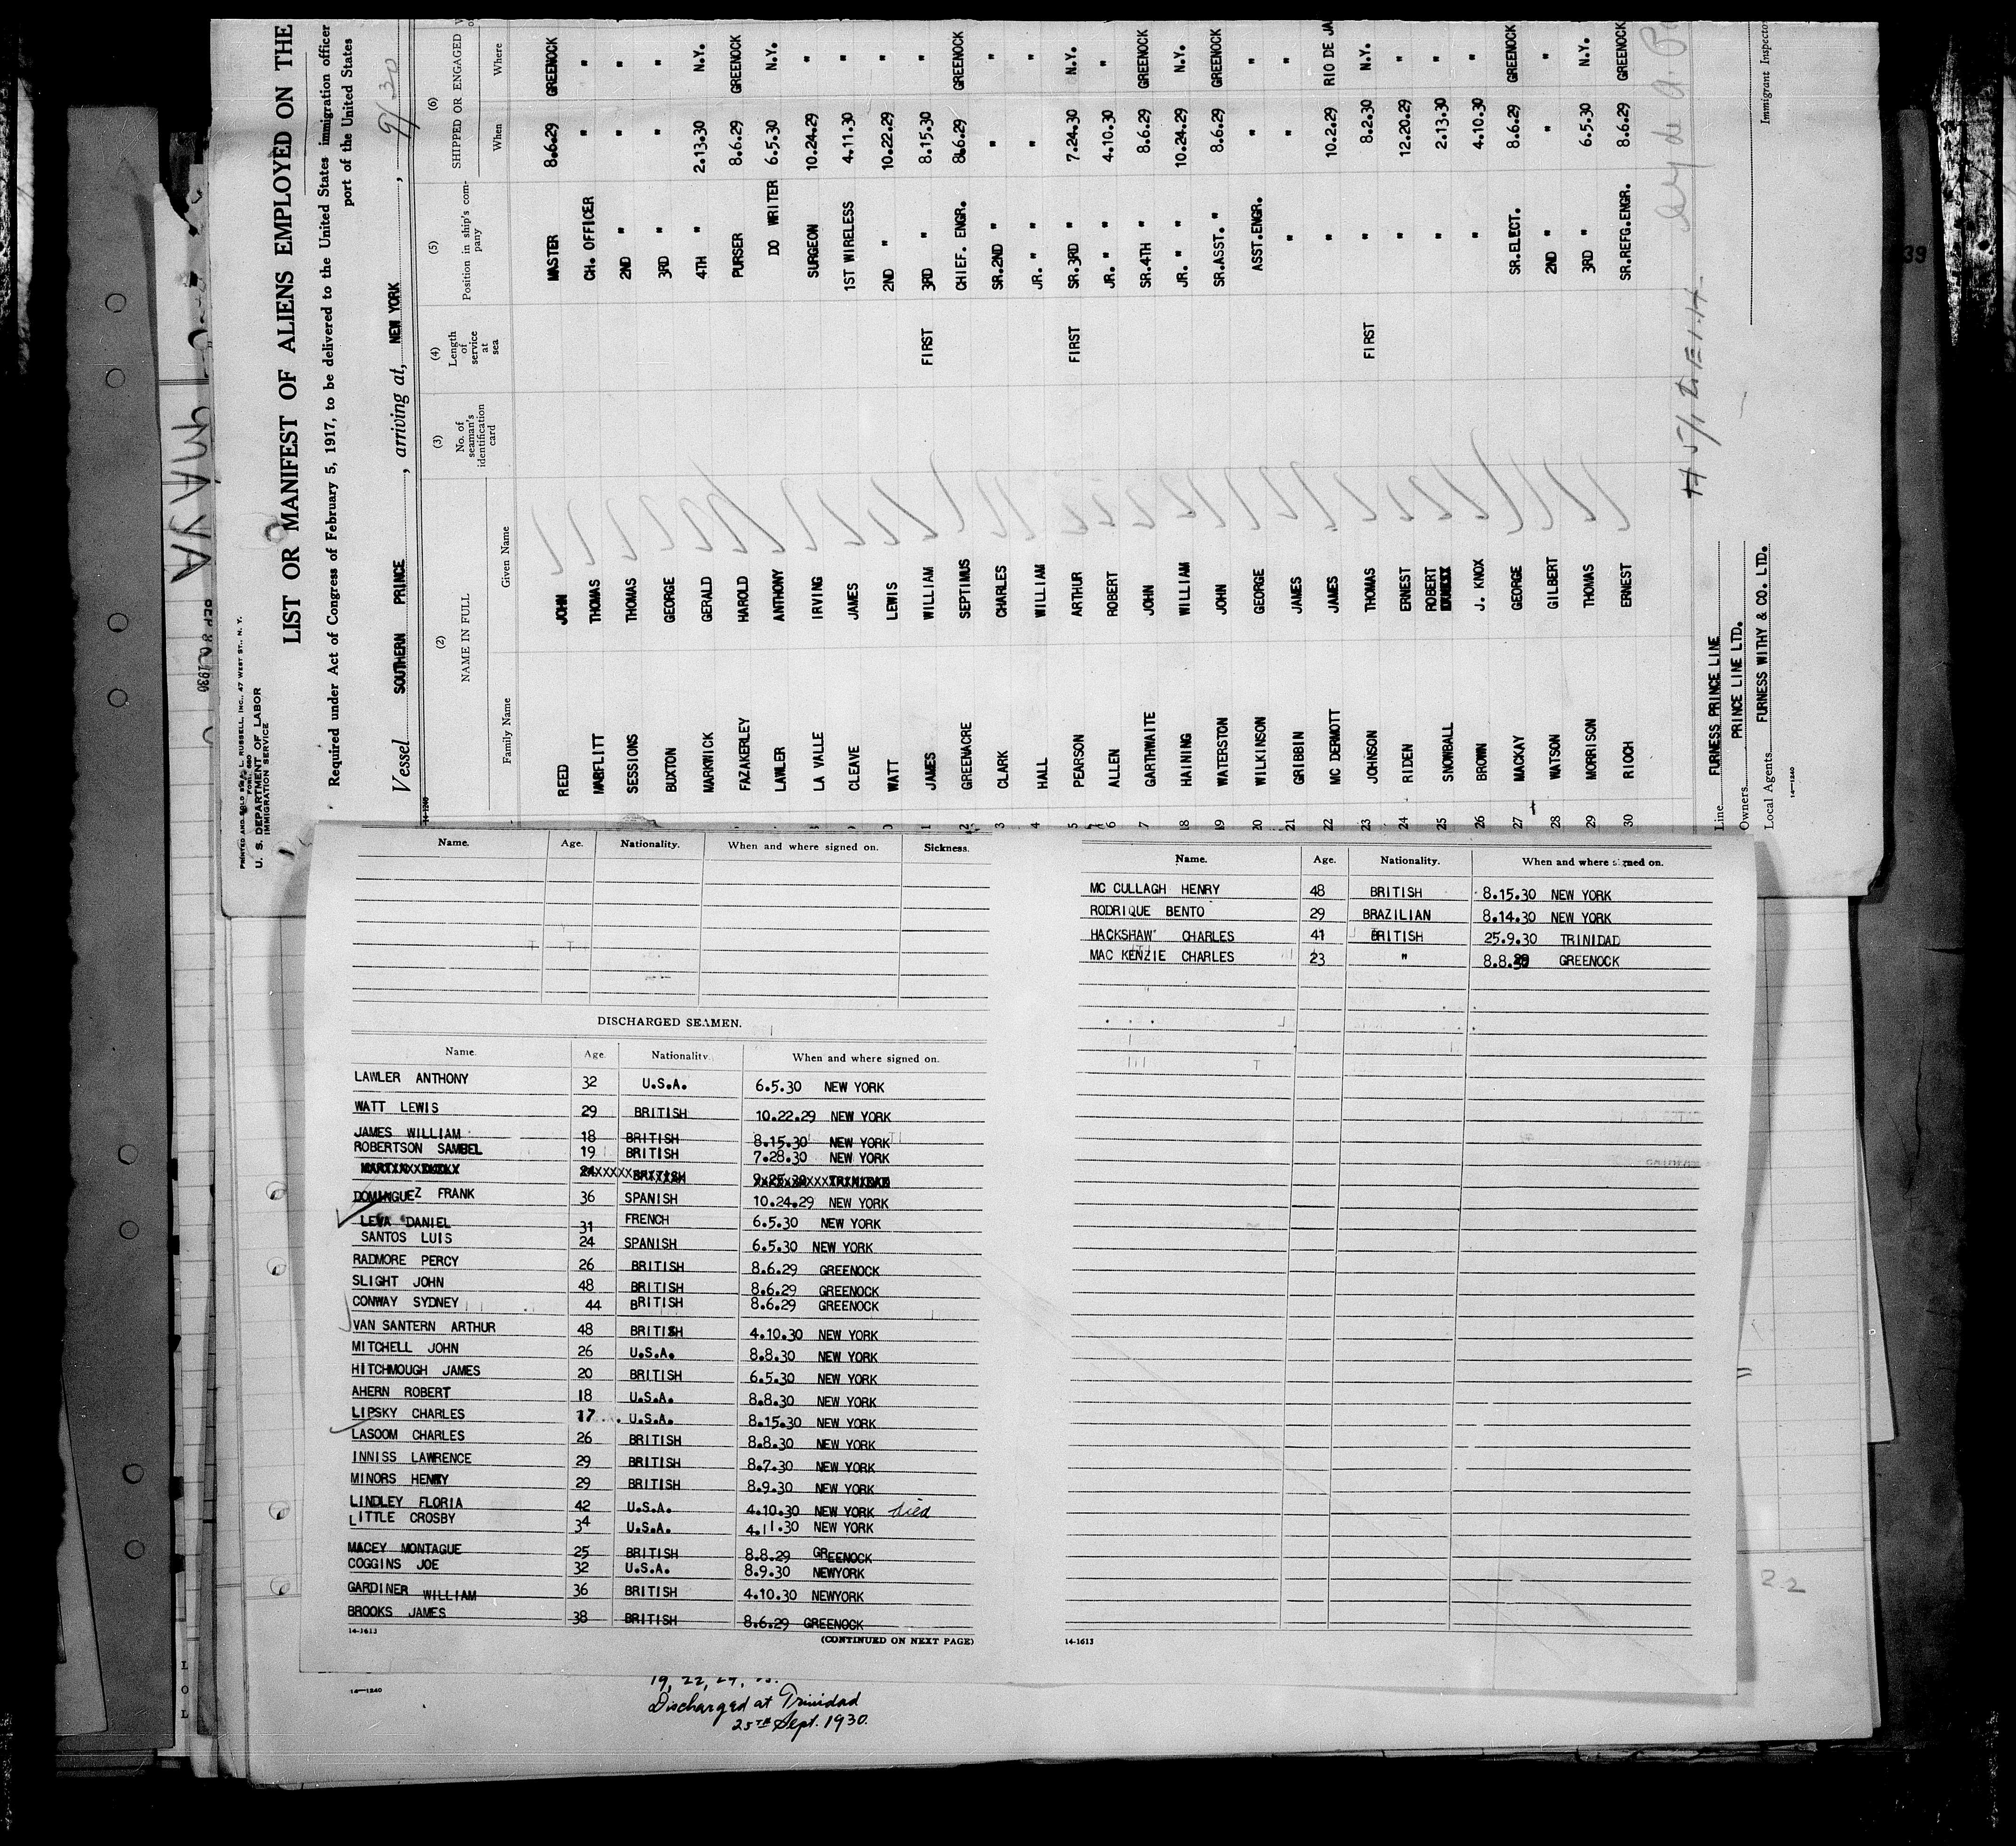 PRINTED AND SOLD BY A. L. RUSSELL, INC., 47 WEST ST., N. Y.
FORM 680
U. S. DEPARTMENT OF LABOR
IMMIGRATION SERVICE
LIST OR MANIFEST OF ALIENS EMPLOYED ON THE
Required under Act of Congress of February 5, 1917, to be delivered to the United States immigration officer
port of the United States
Vessel SOUTHERN PRINCE, arriving at, NEW YORK, 9/30
14-1240
(2) (3) (4) (5) (6)
NAME IN FULL No. of seaman's identification card Length of service at sea Position in ship's company SHIPPED OR ENGAGED
Family Name Given Name When Where
REED JOHN MASTER 8.6.29 GREENOCK
MARFLITT THOMAS CH. OFFICER " "
SESSIONS THOMAS 2ND " " "
BUXTON GEORGE 3RD " " "
MARKWICK GERALD 4TH " 2.13.30 N.Y.
FAZAKERLEY HAROLD PURSER 8.6.29 GREENOCK
LAWLER ANTHONY DO WRITER 6.5.30 N.Y.
LA VALLE IRVING SURGEON 10.24.29 "
CLEAVE JAMES 1ST WIRELESS 4.11.30 "
WATT LEWIS 2ND " 10.22.29 "
1 JAMES WILLIAM FIRST 3RD " 8.15.30 "
2 GREENACRE SEPTIMUS CHIEF. ENGR. 8.6.29 GREENOCK
3 CLARK CHARLES SR.2ND " " "
4 HALL WILLIAM JR. " " " "
5 PEARSON ARTHUR FIRST SR.3RD " 7.24.30 N.Y.
6 ALLEN ROBERT JR. " " 4.10.30 "
7 GARTHWAITE JOHN SR.4TH " 8.6.29 GREENOCK
18 HAINING WILLIAM JR. " " 10.24.29 N.Y.
19 WATERSTON JOHN SR.ASST. " 8.6.29 GREENOCK
20 WILKINSON GEORGE ASST.ENGR. " "
21 GRIBBIN JAMES " " "
22 MC DERMOTT JAMES " 10.2.29 RIO DE JA
23 JOHNSON THOMAS FIRST " 8.2.30 N.Y.
24 RIDEN ERNEST " 12.20.29 "
25 SNOWBALL ROBERT " 2.13.30 "
26 BROWN J. KNOX " 4.10.30 "
27 MACKAY GEORGE SR.ELECT. 8.6.29 GREENOCK
28 WATSON GILBERT 2ND " " "
29 MORRISON THOMAS 3RD " 6.5.30 N.Y.
30 RIOCH ERNEST SR.REFG.ENGR. 8.6.29 GREENOCK
Line FURNESS PRINCE LINE
Owners PRINCE LINE LTD.
Local Agents FURNESS WITHY & CO. LTD.
Immigrant Inspector
14—1240
39
MAYA
Name. Age. Nationality. When and where signed on. Sickness.
DISCHARGED SEAMEN.
Name. Age. Nationality. When and where signed on.
LAWLER ANTHONY 32 U.S.A. 6.5.30 NEW YORK
WATT LEWIS 29 BRITISH 10.22.29 NEW YORK
JAMES WILLIAM 18 BRITISH 8.15.30 NEW YORK
ROBERTSON SAMUEL 19 BRITISH 7.28.30 NEW YORK
DOMINGUEZ FRANK 36 SPANISH 10.24.29 NEW YORK
LEVA DANIEL 31 FRENCH 6.5.30 NEW YORK
SANTOS LUIS 24 SPANISH 6.5.30 NEW YORK
RADMORE PERCY 26 BRITISH 8.6.29 GREENOCK
SLIGHT JOHN 48 BRITISH 8.6.29 GREENOCK
CONWAY SYDNEY 44 BRITISH 8.6.29 GREENOCK
VAN SANTERN ARTHUR 48 BRITISH 4.10.30 NEW YORK
MITCHELL JOHN 26 U.S.A. 8.8.30 NEW YORK
HITCHMOUGH JAMES 20 BRITISH 6.5.30 NEW YORK
AHERN ROBERT 18 U.S.A. 8.8.30 NEW YORK
LIPSKY CHARLES 17 U.S.A. 8.15.30 NEW YORK
LASOOM CHARLES 26 BRITISH 8.8.30 NEW YORK
INNISS LAWRENCE 29 BRITISH 8.7.30 NEW YORK
MINORS HENRY 29 BRITISH 8.9.30 NEW YORK
LINDLEY FLORIA 42 U.S.A. 4.10.30 NEW YORK died
LITTLE CROSBY 34 U.S.A. 4.11.30 NEW YORK
MACEY MONTAGUE 25 BRITISH 8.8.29 GREENOCK
COGGINS JOE 32 U.S.A. 8.9.30 NEWYORK
GARDINER WILLIAM 36 BRITISH 4.10.30 NEWYORK
BROOKS JAMES 38 BRITISH 8.6.29 GREENOCK
14-1613 (CONTINUED ON NEXT PAGE)
Name. Age. Nationality. When and where signed on.
MC CULLAGH HENRY 48 BRITISH 8.15.30 NEW YORK
RODRIQUE BENTO 29 BRAZILIAN 8.14.30 NEW YORK
HACKSHAW CHARLES 41 BRITISH 25.9.30 TRINIDAD
MAC KENZIE CHARLES 23 " 8.8.29 GREENOCK
14-1613
22
14—1240
19, 22,
Discharged at Trinidad
25TH Sept. 1930.
L
O
L